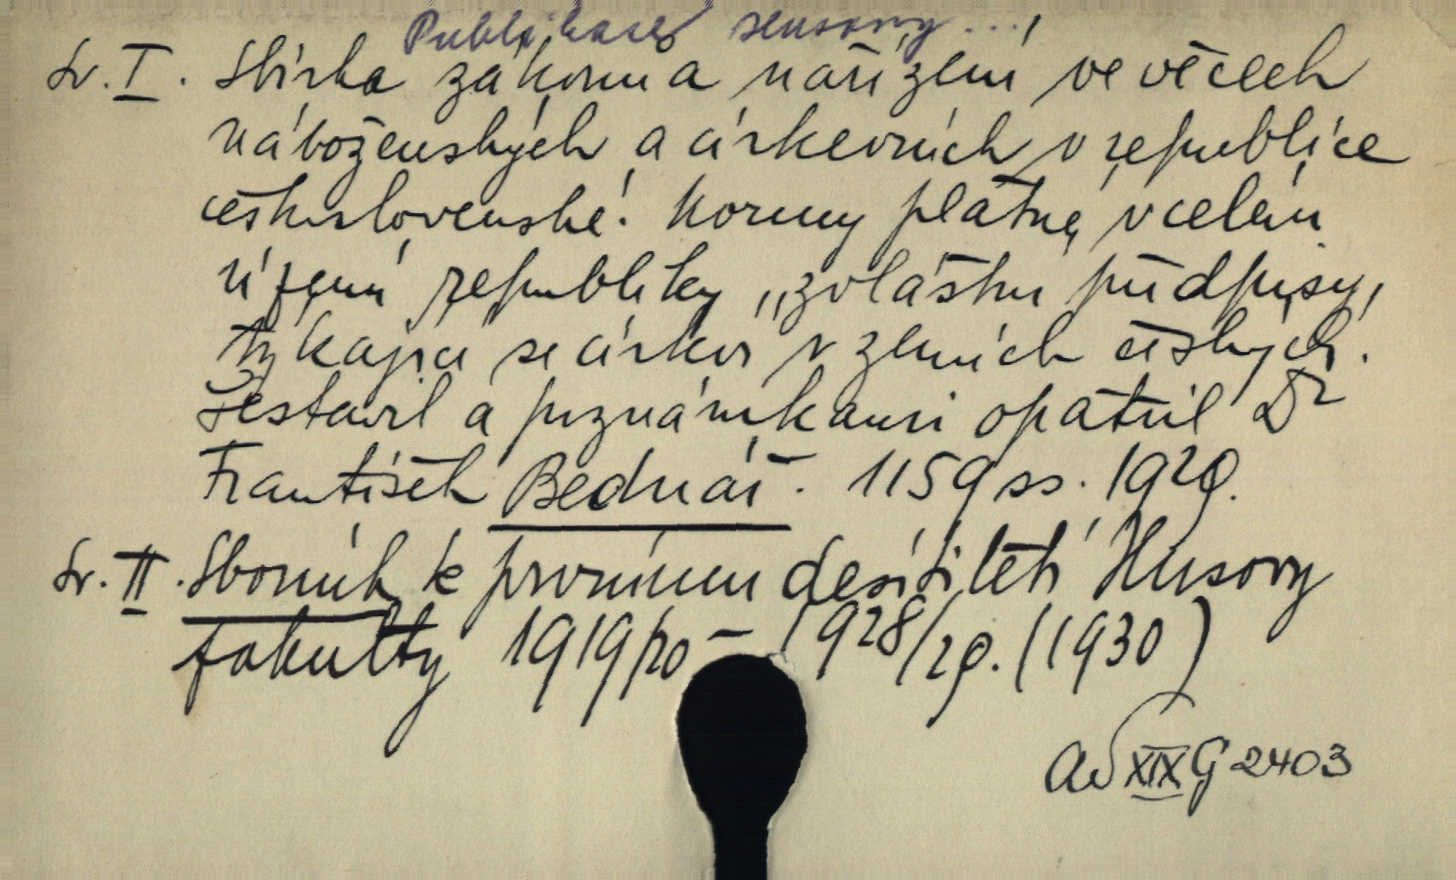 Publikace Husovy ...
Sv. I. Sbírka zákonů a nařízení ve věcech
náboženských a církevních v republice
československé. Normy platné v celém
území republiky „zvláštní předpisy,
týkající se církví" v zemích českých.
Sestavil a poznámkami opatřil Dr
František Bednář. 1159 ss. 1929.
Sv. II. Sborník k prvnímu desítiletí Husovy
fakulty 1919/20 – 1928/29. (1930)
Ad XIX G 2403